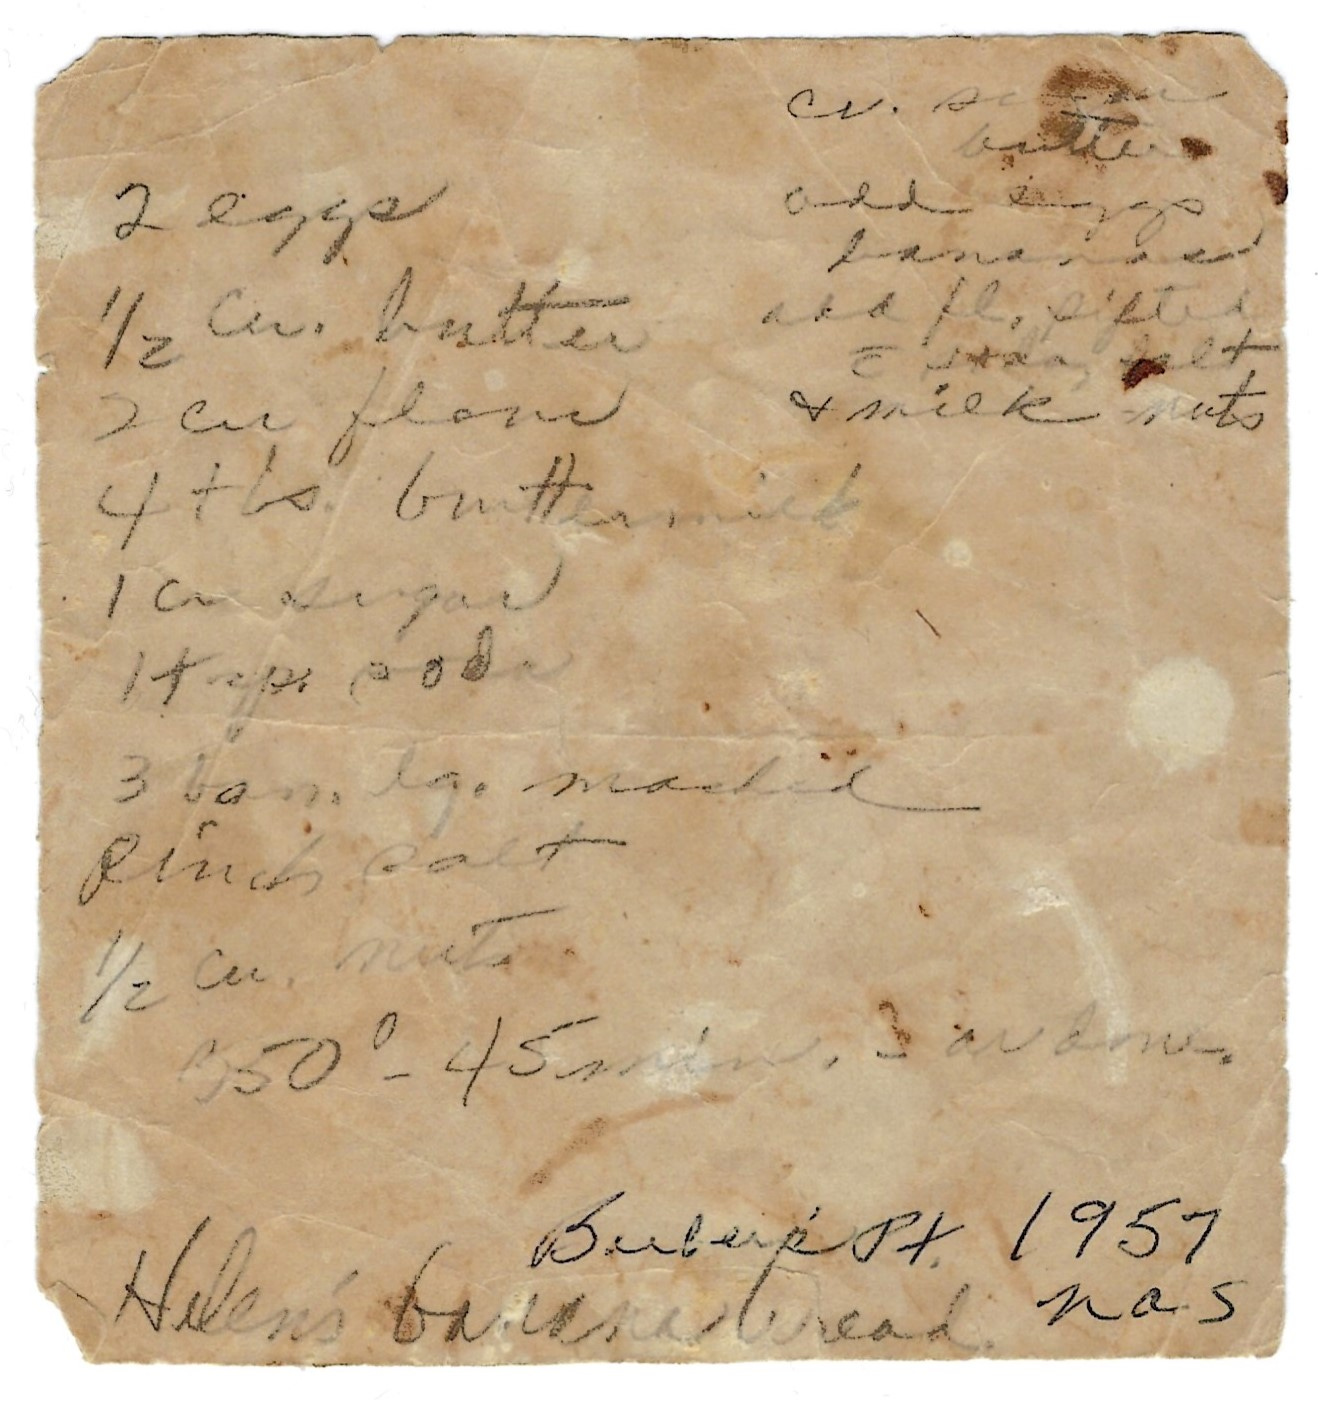 2 eggs
1/2 cu. butter
2 cu flour
4 tbs. buttermilk
1 cu sugar
1 tsp. soda
3 ban. lg. mashed
Pinch salt
1/2 cu. nuts
350° - 45 min.
cr. sugar
butter
add eggs
bananas
add fl. sifted
c̄ soda, salt
& milk nuts
Pt. 1957
Helen's banana bread.